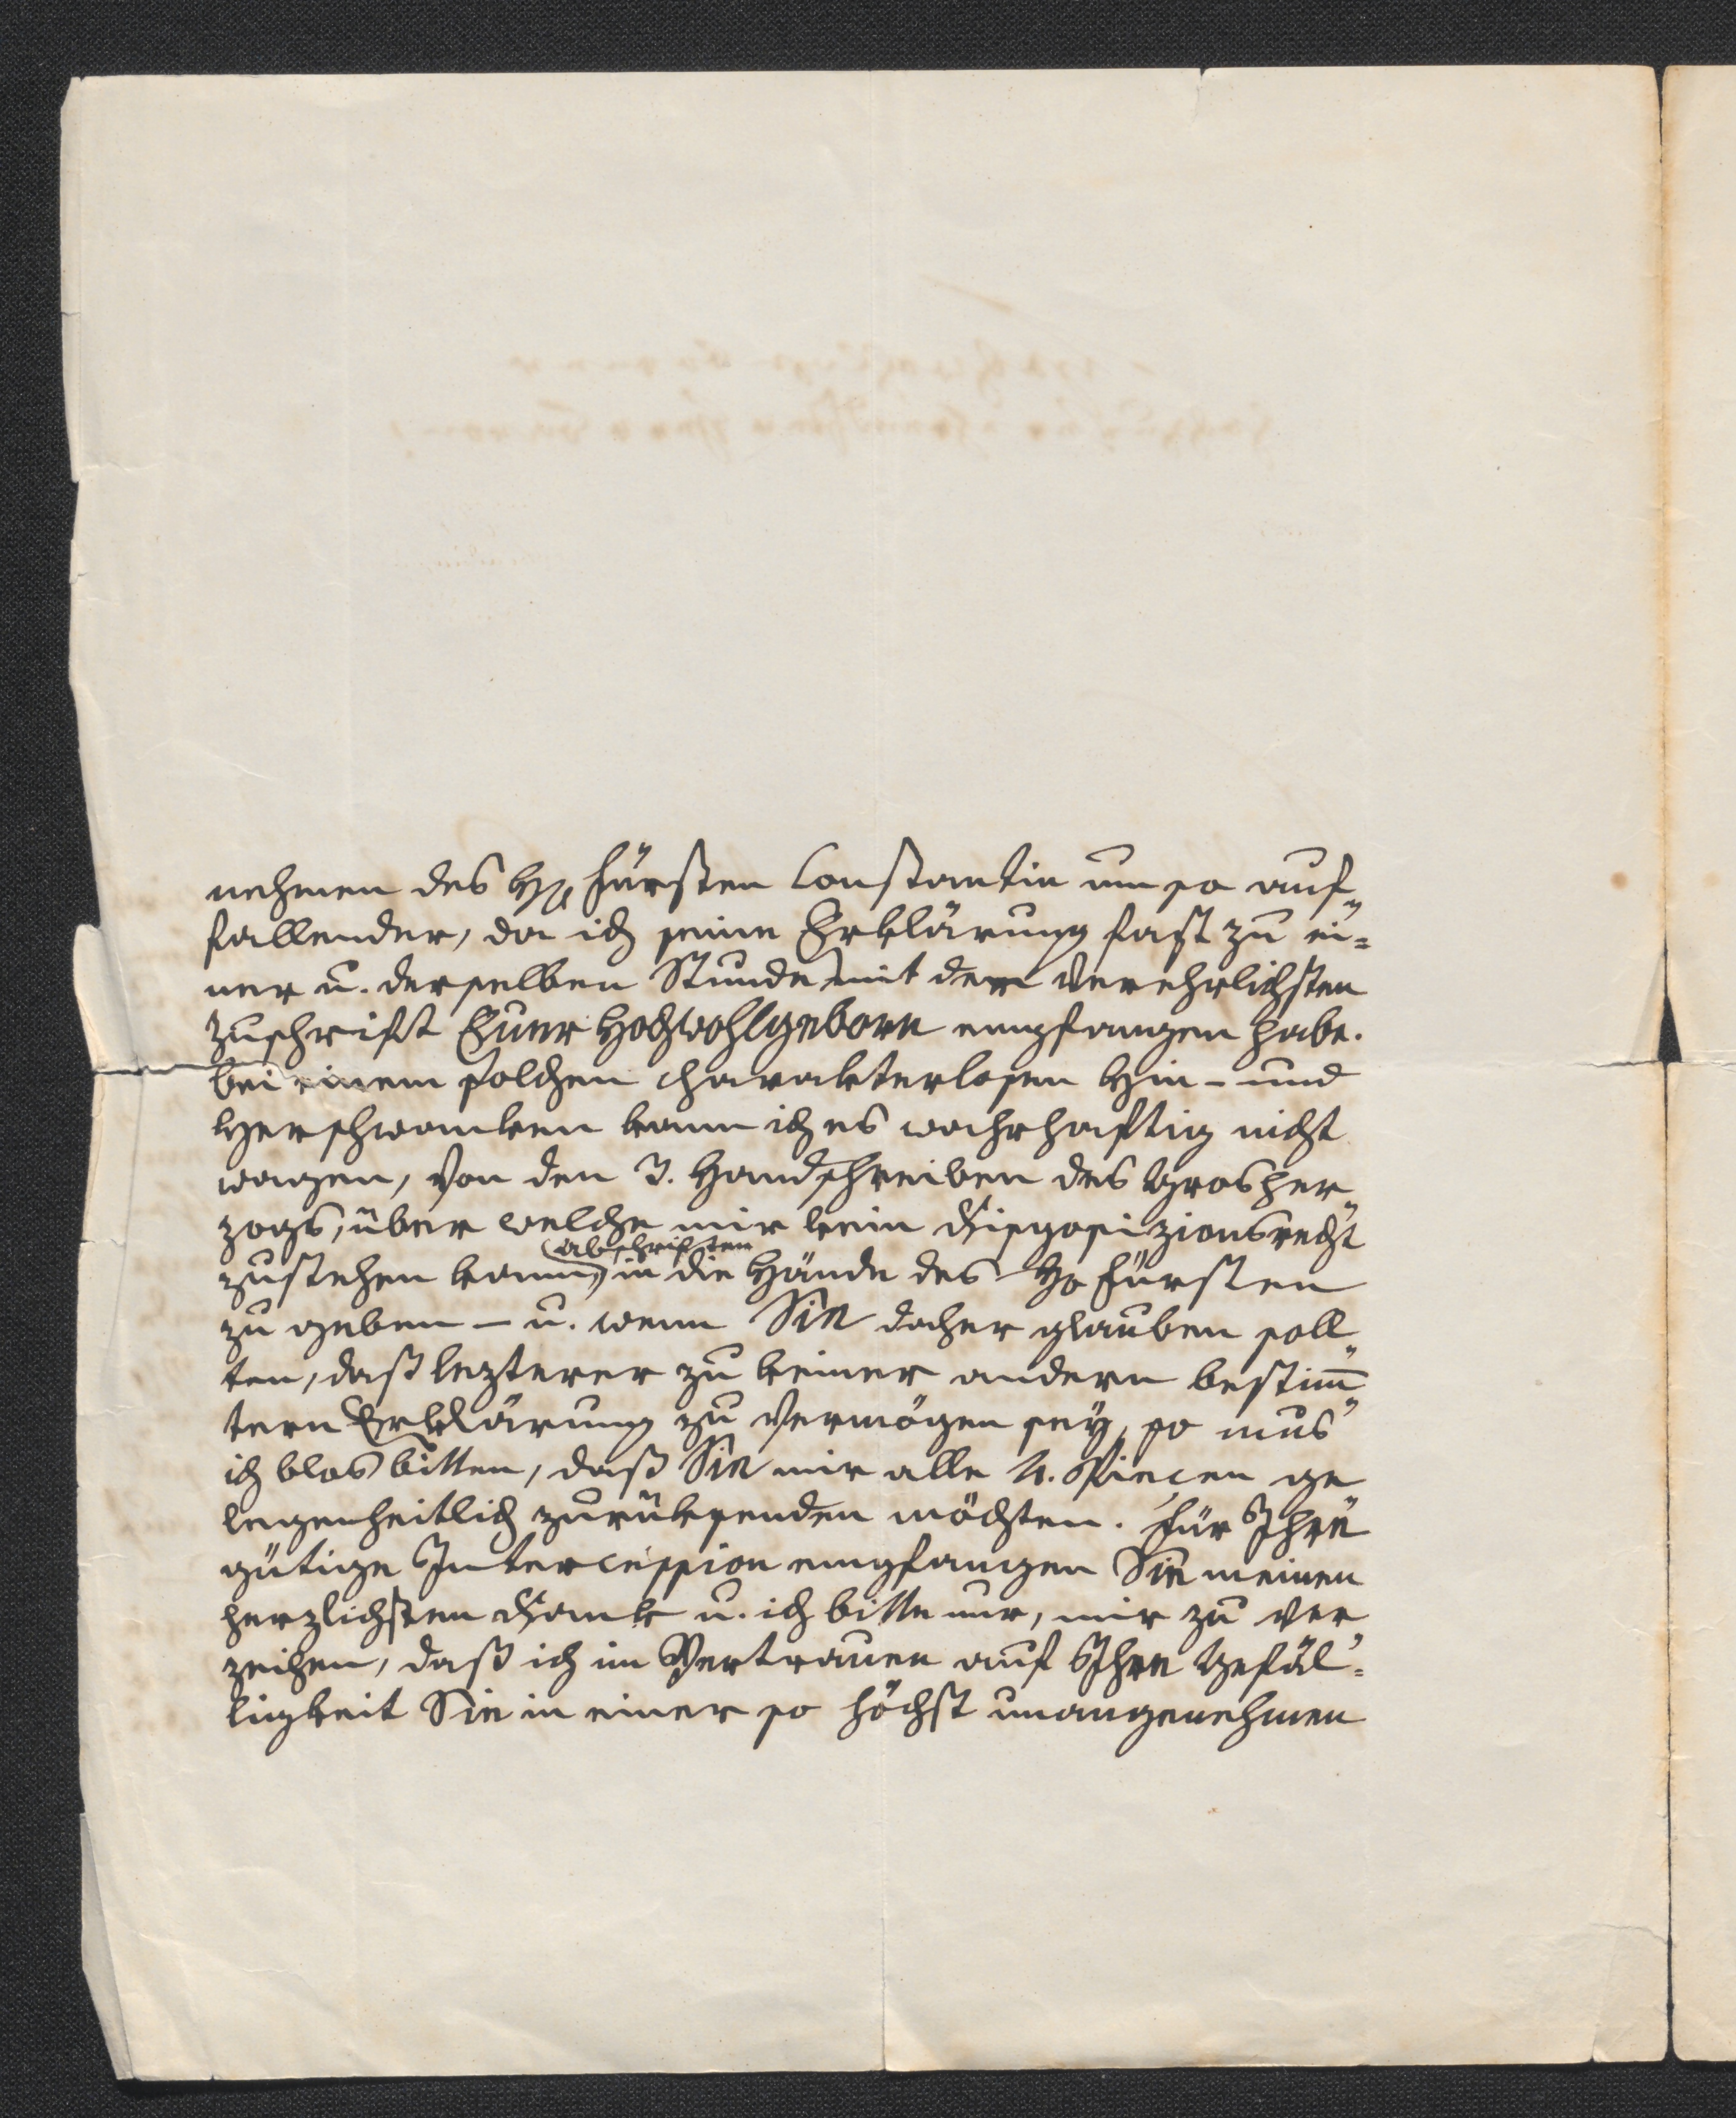 nehmen des H. Fürsten Constantin um so auf„
fallender, da ich seine Erklärung fast zu ei=
ner u. derselben Stunde mit dem verehrlichsten
Zuschrift Euer Hochwohlgeborn empfangen habe.
bei einem solchen charakterlosen Hin- und
Herschwanken kann ich es wahrhaftig nicht
wagen, von den 3. Handschreiben des Grosher„
zogs, über welche mir kein Disposizionsrecht
Abschriften
zustehen kann, in die Hände des H. Fürsten
zu geben – u. wenn Sie daher glauben soll„
ten, daß lezterer zu keiner andern bestim̅„
tern Erklärung zu vermögen sey, so mus
ich blos bitten, daß Sie mir alle 4. Piecen ge
legenheitlich zurüksenden möchten. Für Ihre
gütige Intercession empfangen Sie meinen
herzlichsten Dank u. ich bitte nur, mir zu ver„
zeihen, daß ich im Vertrauen auf Ihre Gefäl=
ligkeit Sie in einer so höchst unangenehmen